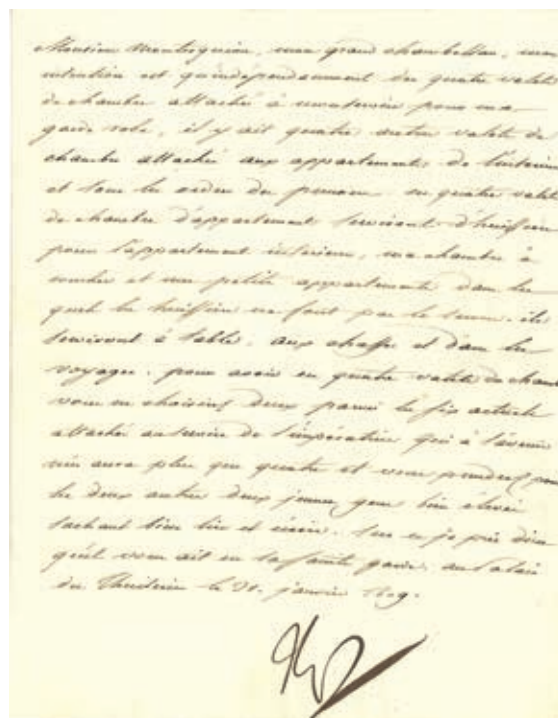 Monsieur Montesquiou, mon grand chambellan, mon
intention est qu'indépendamment des quatre valets
de chambre attachés à mon service pour ma
garde robe, il y ait quatre autres valets de
chambre attachés aux appartements de l'intérieur
et sous les ordres du premier. ces quatre valets
de chambre d'appartement serviront d'huissiers
pour l'appartement intérieur, ma chambre à
coucher et mes petits appartements dans les
quels les huissiers ne font pas le service. ils
serviront à table, aux chasses et dans les
voyages. pour avoir ces quatre valets de chambre
vous en choisirez deux parmi les six actuels
attachés au service de l'impératrice qui à l'avenir
n'en aura plus que quatre et vous prendrez pour
les deux autres deux jeunes gens bien élevés
sachant bien lire et écrire. sur ce je prie dieu
qu'il vous ait en sa sainte garde. au Palais
des Thuileries le 31. janvier 1809.